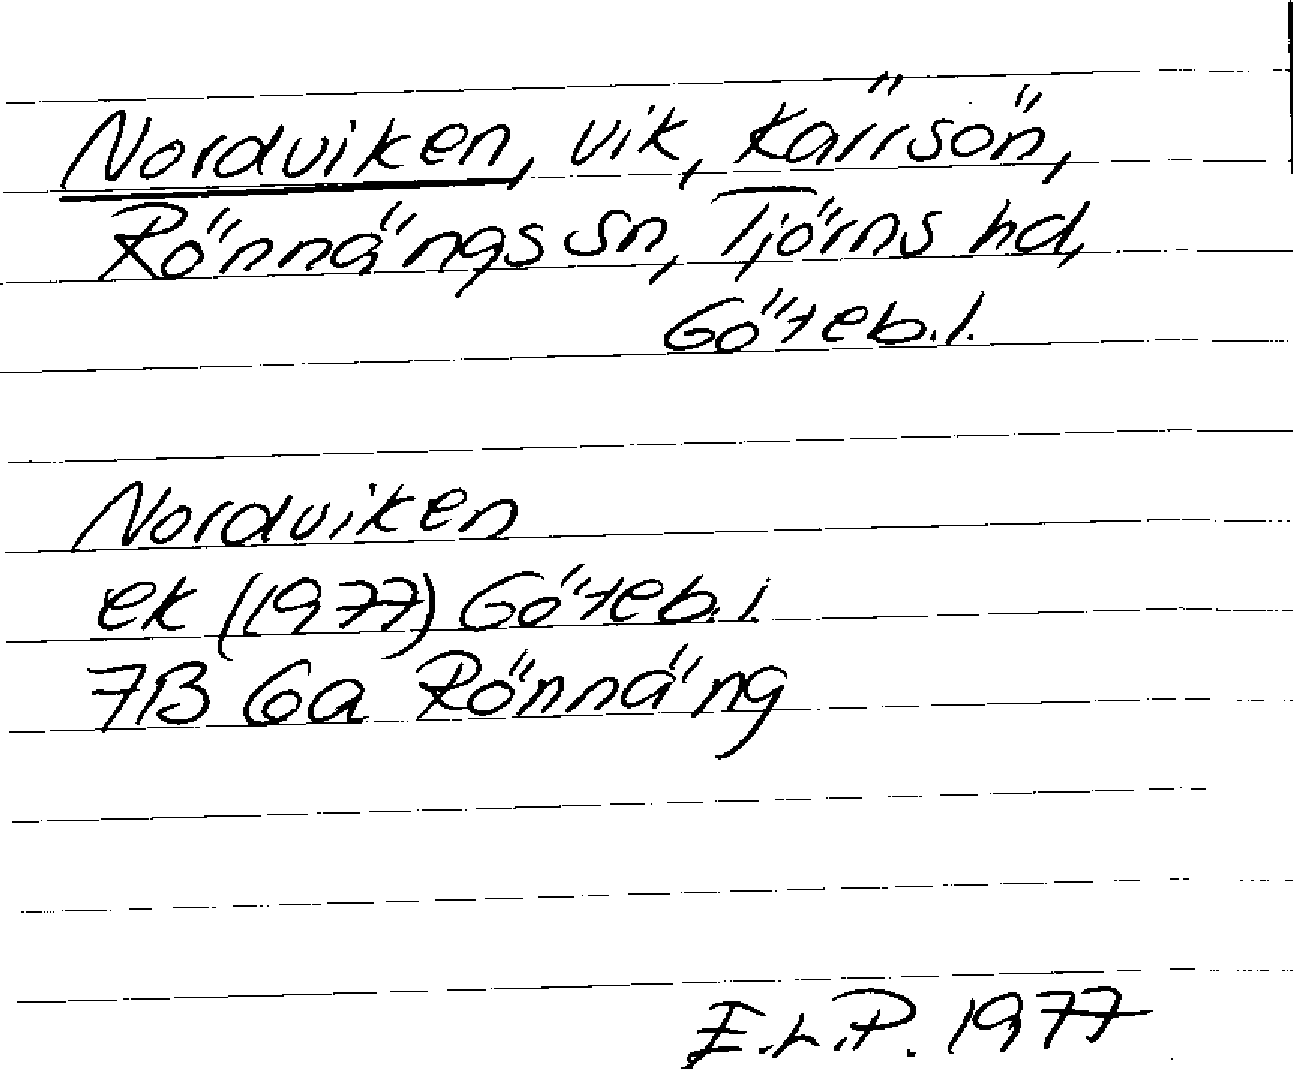 Nordviken, vik, Kärrsön,
Rönnängs sn, Tjörns hd,
Göteb.l.
Nordviken
ek (1977) Göteb.l.
7B 6a Rönnäng
E.L.P. 1977